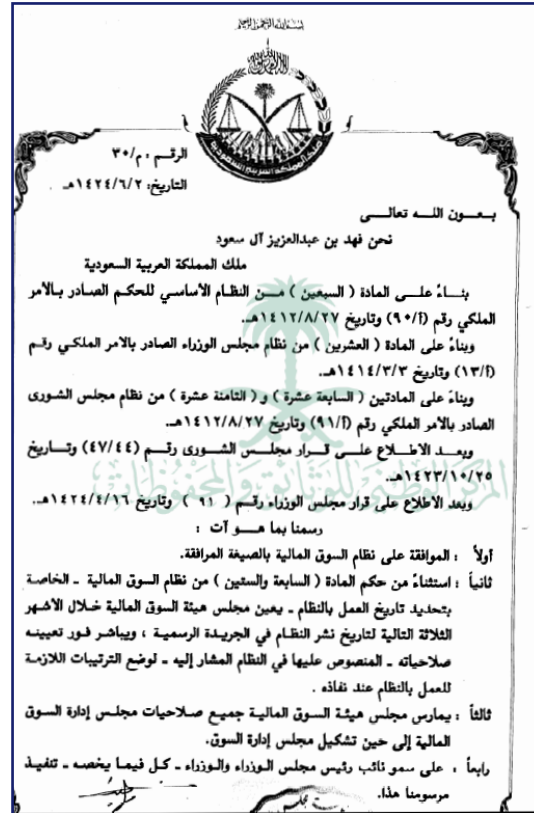 بسم الله الرحمن الرحيم
الرقم : م/٣٠
التاريخ: ١٤٢٤/٦/٢هـ
بعـون اللـه تعالـى
نحن فهد بن عبدالعزيز آل سعود
ملك المملكة العربية السعودية
بنـاءً علـى المادة ( السبعين ) مـن النظام الأساسي للحكم الصادر بـالأمر
الملكي رقم (أ/٩٠) وتاريخ ١٤١٢/٨/٢٧هـ.
وبناءً على المادة ( العشرين ) من نظام مجلس الوزراء الصادر بالأمر الملكي رقـم
(أ/١٣) وتاريخ ١٤١٤/٣/٣هـ.
وبناءً على المادتين ( السابعة عشرة ) و ( الثامنة عشرة ) من نظام مجلس الشورى
الصادر بالأمر الملكي رقم (أ/٩١) وتاريخ ١٤١٢/٨/٢٧هـ.
وبعـد الاطـلاع علـى قـرار مجلـس الشورى رقـم (٤٧/٤٤) وتـاريخ
١٤٢٣/١٠/٢٥هـ.
المركز الوطني للوثائق والمحفوظات
وبعد الاطلاع على قرار مجلس الوزراء رقـم ( ٩١ ) وتاريخ ١٤٢٤/٤/١٦هـ.
رسمنا بما هـو آت :
أولاً : الموافقة على نظام السوق المالية بالصيغة المرافقة.
ثانياً : استثناءً من حكم المادة ( السابعة والستين ) من نظام السوق المالية ـ الخاصـة
بتحديد تاريخ العمل بالنظام ـ يعين مجلس هيئة السوق المالية خـلال الأشهر
الثلاثة التالية لتاريخ نشر النظـام في الجريـدة الرسمية ، ويباشـر فـور تعيينه
صلاحياته ـ المنصوص عليها في النظام المشار إليه ـ لوضع الترتيبات اللازمـة
للعمل بالنظام عند نفاذه .
ثالثاً : يمارس مجلس هيئـة السـوق الماليـة جميـع صـلاحيات مجلـس إدارة السوق
المالية إلى حين تشكيل مجلس إدارة السوق.
رابعاً : على سمو نائب رئيس مجلس الـوزراء والوزراء ـ كـل فيمـا يخصـه ـ تنفيـذ
مرسومنا هذا.